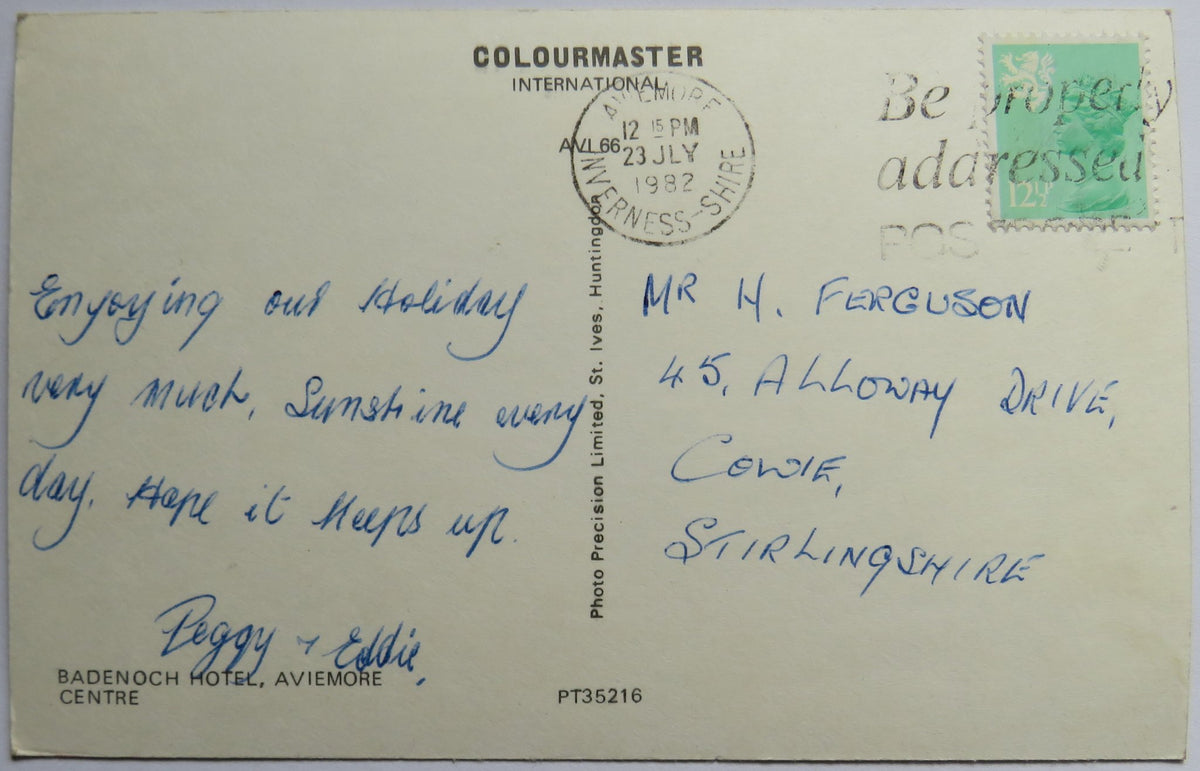 COLOURMASTER
INTERNATIONAL
AVI.66
AVIEMORE
12 15 PM
23 JLY
1982
INVERNESS-SHIRE
Be properly
addressed
12½
Enjoying our Holiday
very much. Sunshine every
day. Hope it keeps up.
Peggy + Eddie.
BADENOCH HOTEL, AVIEMORE
CENTRE
PT35216
Photo Precision Limited, St. Ives, Huntingdon
MR H. FERGUSON
45, ALLOWAY DRIVE,
COWIE,
STIRLINGSHIRE